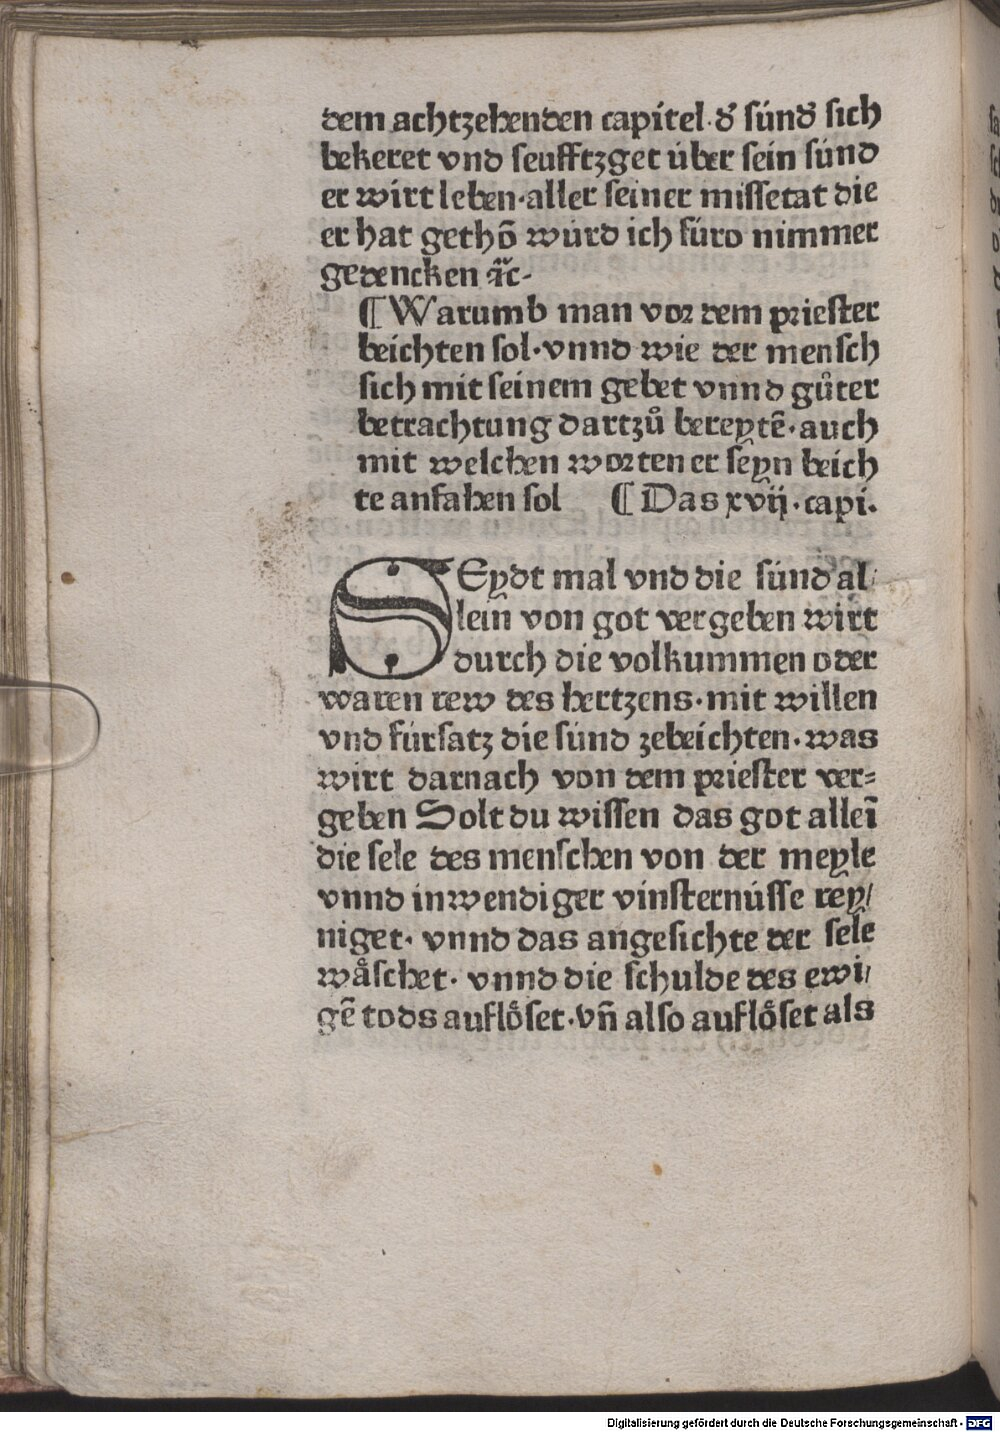 dem achtzehenden capitel·dˀ súndˀ sich
bekeret vnd seufftzget úber sein súnd
er wirt leben·aller seiner missetat die
er hat gethõ wúrd ich fúro nimmer
gedencken ꝛc̃·
¶ Warumb man vor dem priester
beichten sol·vnnd wie der mensch
sich mit seinem gebet vnnd gůter
betrachtung dartzů bereytẽ·auch
mit welchen worten er seyn beich
te anfahen sol ¶ Das xvij·capi.
SEydt mal vnd die súnd al/
lein von got vergeben wirt
durch die volkummen oder
waren rew des hertzens·mit willen
vnd fúrsatz die súnd zebeichten·was
wirt darnach von dem priester ver=
geben Solt du wissen das got alleĩ
die sele des menschen von der meyle
vnnd inwendiger vinsternússe rey/
niget· vnnd das angesichte der sele
wåschet· vnnd die schulde des ewi/
gẽ tods auflöset·vñ also auflöset als
Digitalisierung gefördert durch die Deutsche Forschungsgemeinschaft - DFG